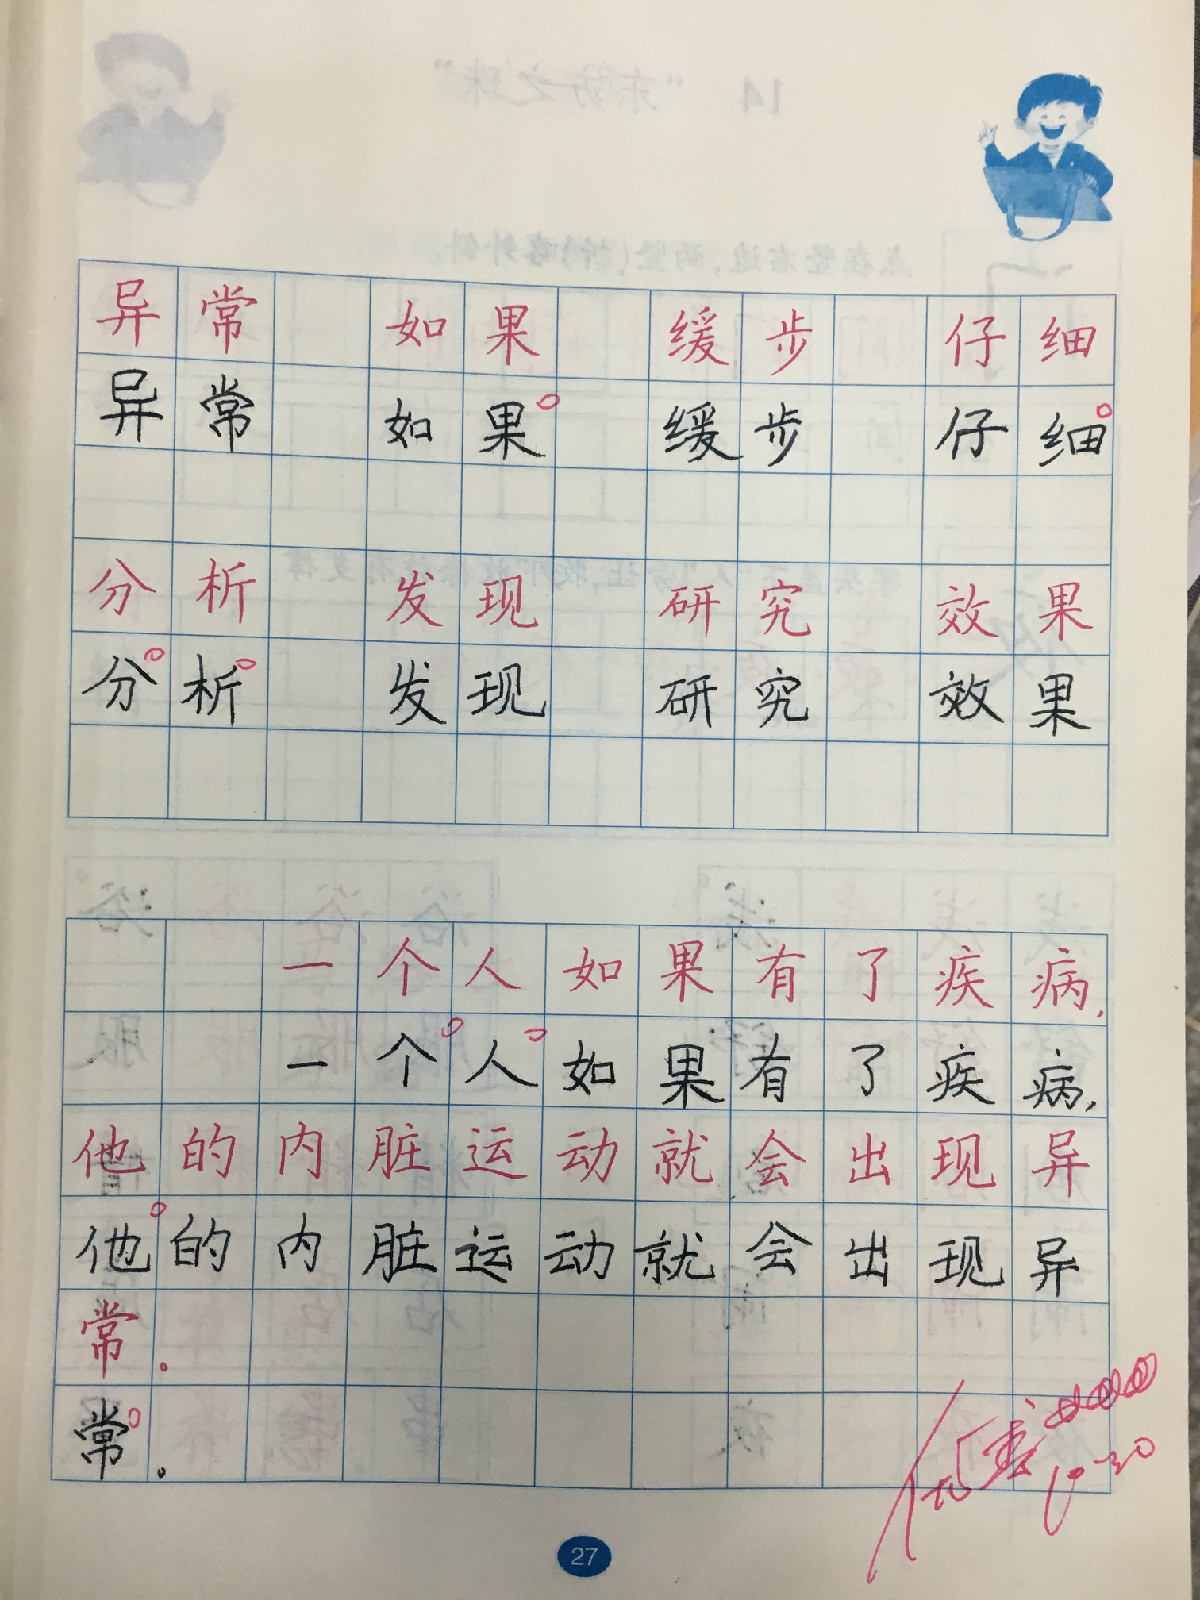 异常 如果 缓步 仔细
异常 如果 缓步 仔细
分析 发现 研究 效果
分析 发现 研究 效果
一个人如果有了疾病，
一个人如果有了疾病，
他的内脏运动就会出现异
他的内脏运动就会出现异
常。
常。
10-30
27